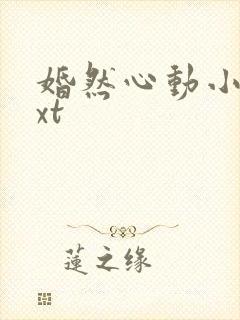 婚然心動小
xt
蓮之缘